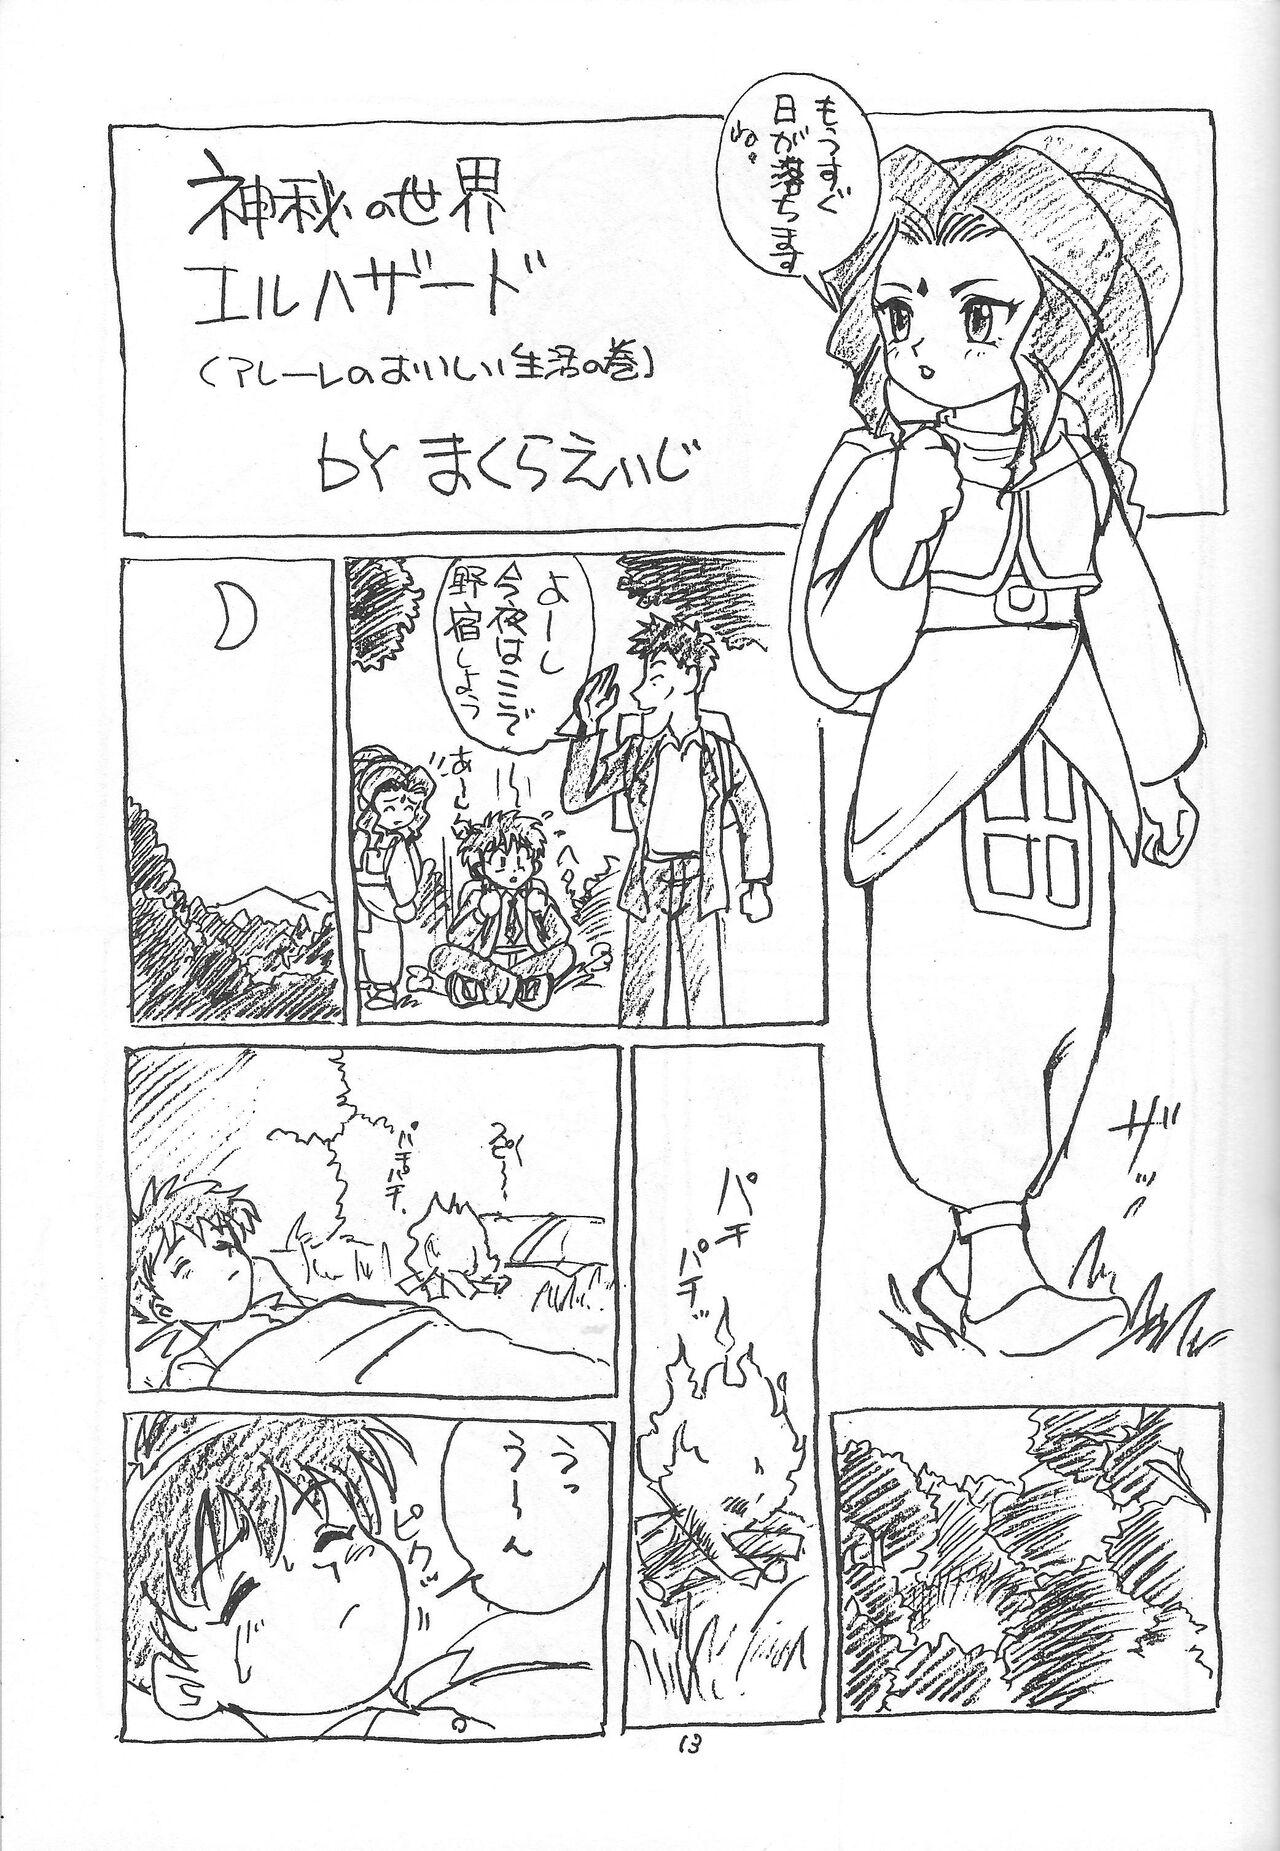 神秘の世界
エルハザード
(アレーレのおいしい生活の巻)
by まくらえいじ
もうすぐ
日が落ちます
ね。
よーし
今夜はここで
野宿しよう
あーん
ヘロ
ザッ
パチ
パチッ
スピー
パチパチ
うっ
うーん
ピクッ
13